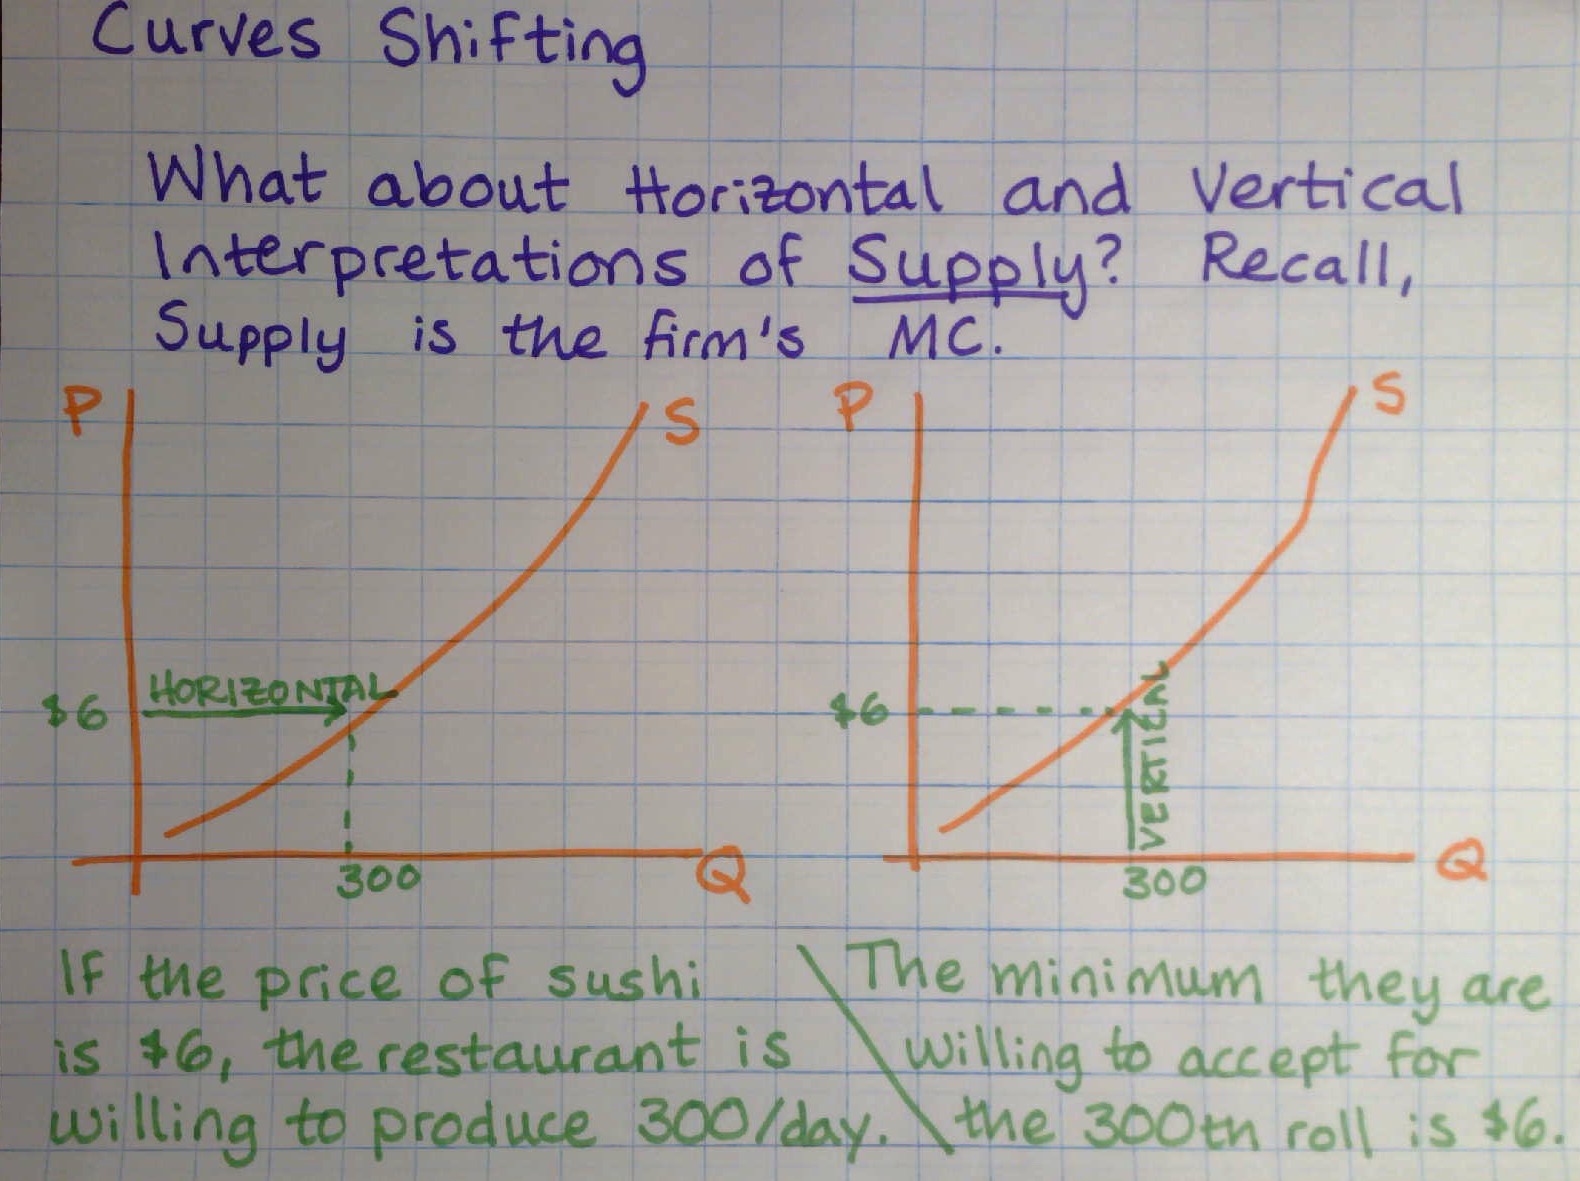 Curves Shifting
What about Horizontal and Vertical
Interpretations of Supply? Recall,
Supply is the firm's MC.
P
S
$6
HORIZONTAL
300
Q
P
S
$6
VERTICAL
300
Q
If the price of sushi
is $6, the restaurant is
willing to produce 300/day.
The minimum they are
willing to accept for
the 300th roll is $6.